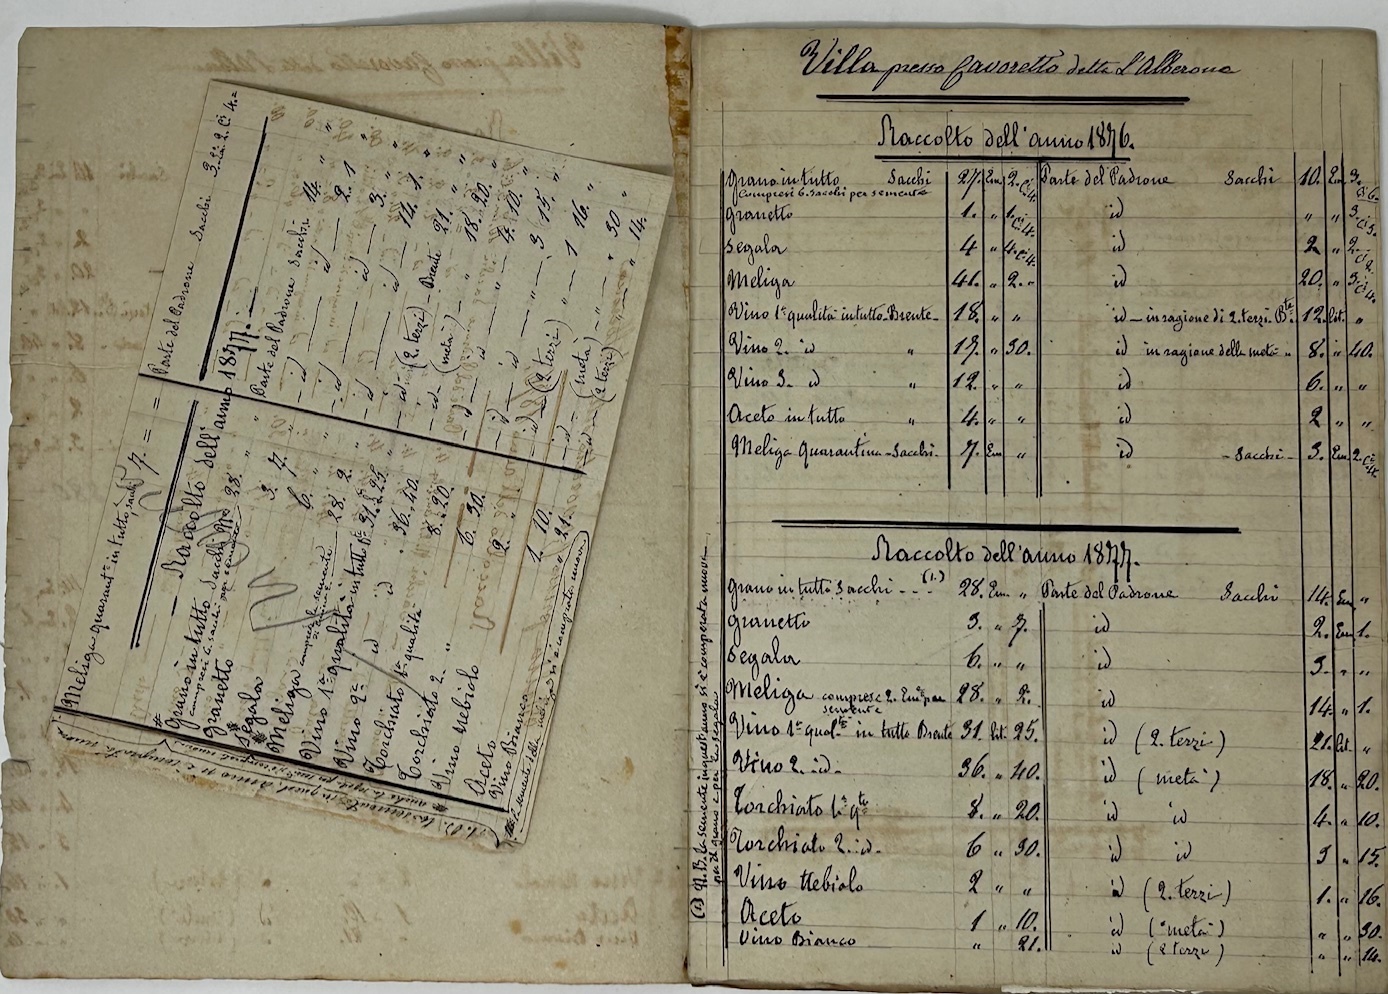 Villa presso Cavoretto detta l'Alberona
Raccolto dell'anno 1876.
Grano in tutto Sacchi 27. Em 2. Ci 4. Parte del Padrone Sacchi 10. Em 3. Ci 6.
Compresi 6. Sacchi per semente
Granetto 1. " 1. Ci 4. id " " 3. Ci 3.
Segala 4 " 4. Ci 4. id 2 " 2. Ci 2.
Meliga 41. " 2. " id 20. " 3. Ci 4.
Vino 1ª qualità in tutto Brente 18. " " id in ragione di 2. terzi Bte. 12. Lit. "
Vino 2. id " 17. " 30. id in ragione della metà " 8. " 40.
Vino 3. id " 12. " " id 6. " "
Aceto in tutto 4. " " id 2 " "
Meliga Quarantina Sacchi 7. Em " id Sacchi 3. Em 2. Ci 4.
Raccolto dell'anno 1877.
Grano in tutto Sacchi (1.) 28. Em. " Parte del Padrone Sacchi 14. Em "
Granetto 3. " 7. id 2. Em 1.
Segala 6. " " id 3. " "
Meliga comprese 2. Em. per semente 28. " 2. id 14. " 1.
Vino 1ª qualtà in tutto Brente 31. Lit. 25. id (2. terzi) 21. Lit. "
Vino 2. id. 36. " 40. id (metà) 18. " 20.
Torchiato 1ª qtà 8. " 20. id id 4. " 10.
Torchiato 2. id. 6 " 30. id id 3 " 15.
Vino Nebiolo 2 " " id (2. terzi) 1. " 16.
Aceto 1 " 10. id (metà) " " 30.
Vino Bianco " 21. id (2 terzi) " " 14.
(1) N.B. La semente in quest'anno si è comperata nuova
per il grano e per la segala
Meliga quarantª in tutto, sacchi 7. = = Parte del Padrone Sacchi 3. Em 2. Ci 4. =
Raccolto dell'anno 1877.
Grano in tutto Sacchi 28. " Parte del Padrone Sacchi 14. "
compresi 6. sacchi per semente
Granetto 3. 7. id 2. 1
Segala 6. " id 3. "
Meliga comprese la semente 28. 2. id 14. 1.
Vino 1ª qualità in tutto 31. 25. id (2. terzi) Brente 21. "
Vino 2ª id 36. 40. id (metà) " 18. 20.
Torchiato 1ª qualità 8. 20. id 4. 10.
Torchiato 2. " 6. 30. id " 3 15.
Vino nebiolo 2. " id (2 terzi) " 1 16.
Aceto 1. 10. id (metà) " " 30
Vino Bianco " 21. id (2 terzi) " " 14.